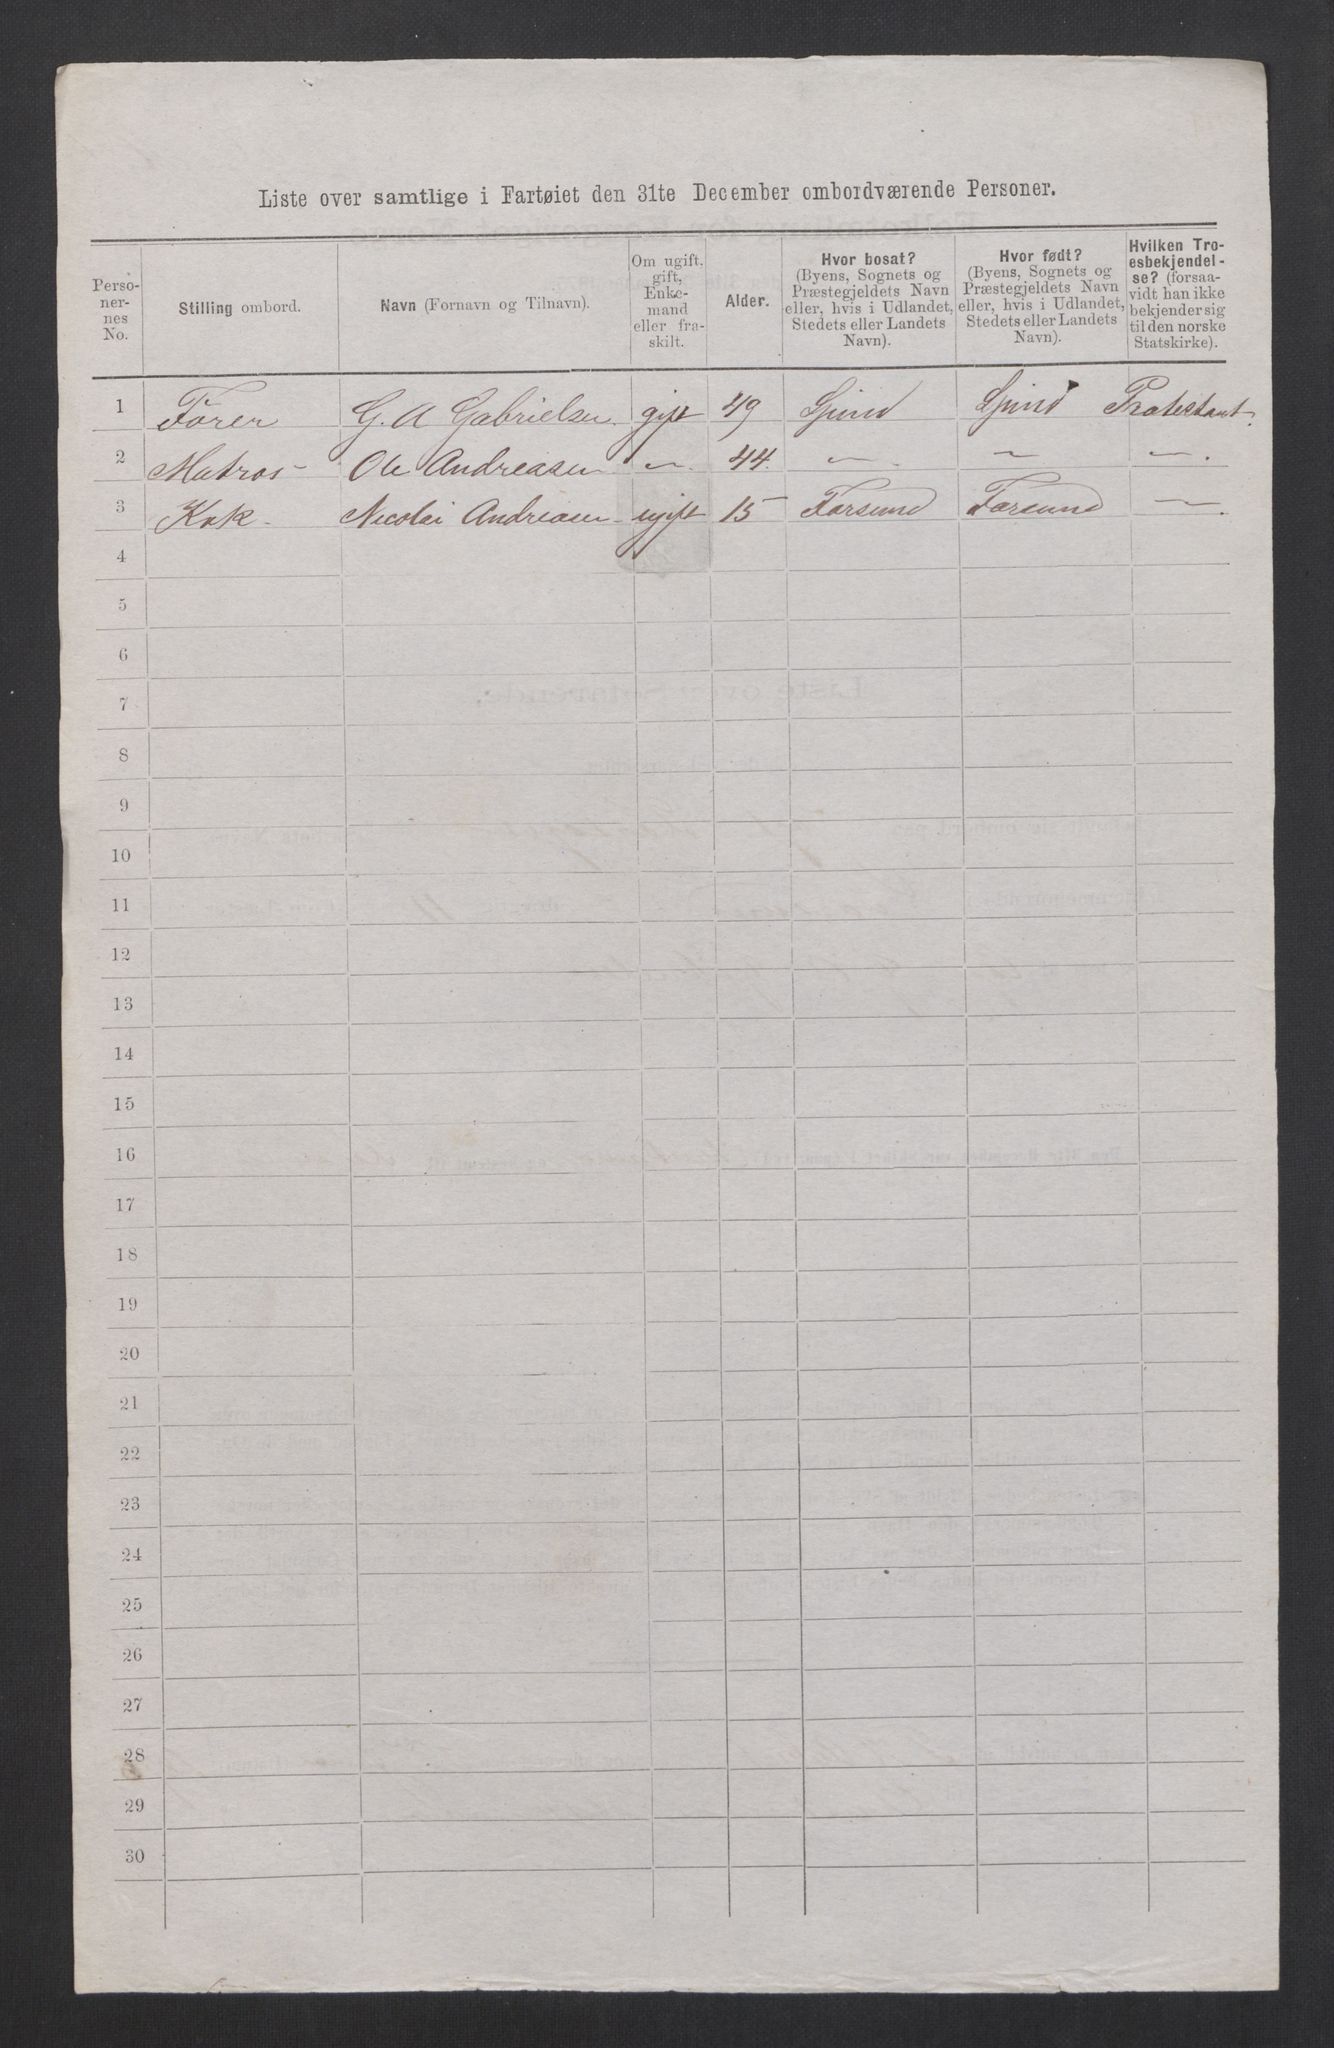 Liste over samtlige i Fartøiet den 31te December ombordværende Personer.
Perso-
ner-
nes
No.
Stilling ombord.
Navn (Fornavn og Tilnavn).
Om ugift,
gift,
Enke-
mand
eller fra-
skilt.
Alder.
Hvor bosat?
(Byens, Sognets og
Præstegjeldets Navn
eller, hvis i Udlandet,
Stedets eller Landets
Navn).
Hvor født?
(Byens, Sognets og
Præstegjeldets Navn
eller, hvis i Udlandet,
Stedets eller Landets
Navn).
Hvilken Tro-
esbekjendel-
se? (forsaa-
vidt han ikke
bekjender sig
til den norske
Statskirke).
1 Fører G. A Gabrielsen gift 49 Protestant.
2 Matros Ole Andreasen —„— 44 —„— —„— —„—
3 Kok Nicolai Andreasen ugift 15 Farsund Farsund —„—
4
5
6
7
8
9
10
11
12
13
14
15
16
17
18
19
20
21
22
23
24
25
26
27
28
29
30